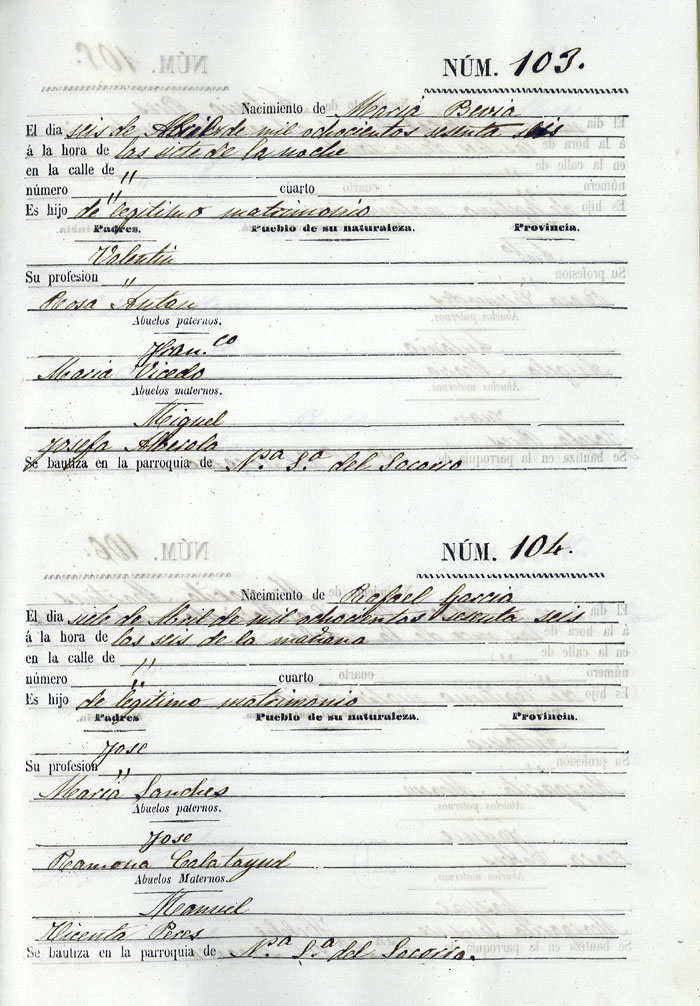 NÚM. 103.
Nacimiento de Maria Bevia
El dia seis de Abril de mil ochocientos sesenta seis
á la hora de las siete de la noche
en la calle de "
número " cuarto
Es hijo de legitimo matrimonio
Padres. Pueblo de su naturaleza. Provincia.
Valentin
Su profesion "
Rosa Antan
Abuelos paternos.
Fran.co
Maria Vicedo
Abuelos maternos.
Miguel
Josefa Alberola
Se bautiza en la parroquia de N.ª S.ª del Socorro
NÚM. 104.
Nacimiento de Rafael Garcia
El dia siete de Abril de mil ochocientos sesenta seis
á la hora de las seis de la mañana
en la calle de "
número " cuarto
Es hijo de legitimo matrimonio
Padres Pueblo de su naturaleza. Provincia.
Jose
Su profesion "
Maria Sanches
Abuelos paternos.
Jose
Ramona Calatayud
Abuelos Maternos.
Manuel
Vicenta Peres
Se bautiza en la parroquia de N.ª S.ª del Socorro.